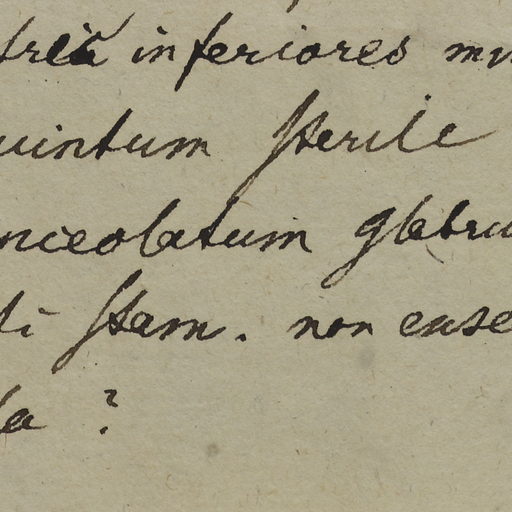 inferiores
uintum sterile
nceolatum glabru
stam. non exse
la ?